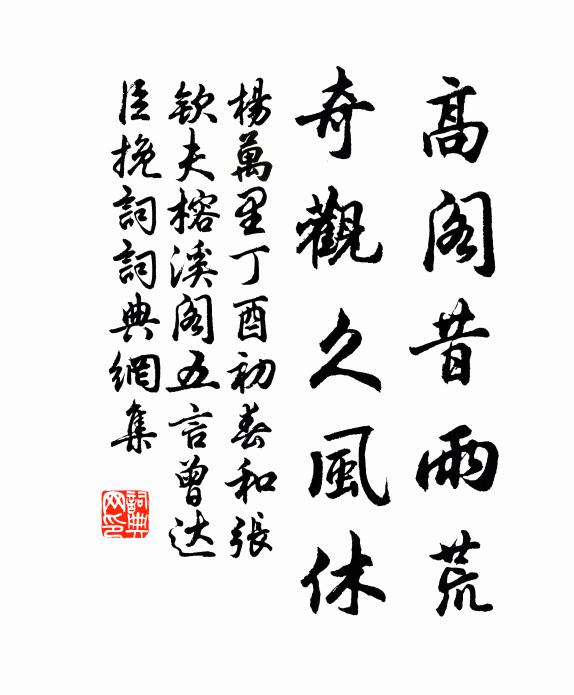 高閣昔雨荒
奇觀久風休
楊萬里丁酉初春和張
欽夫榕溪閣五言曾达
臣挽詞詞典網集
詞典
网印